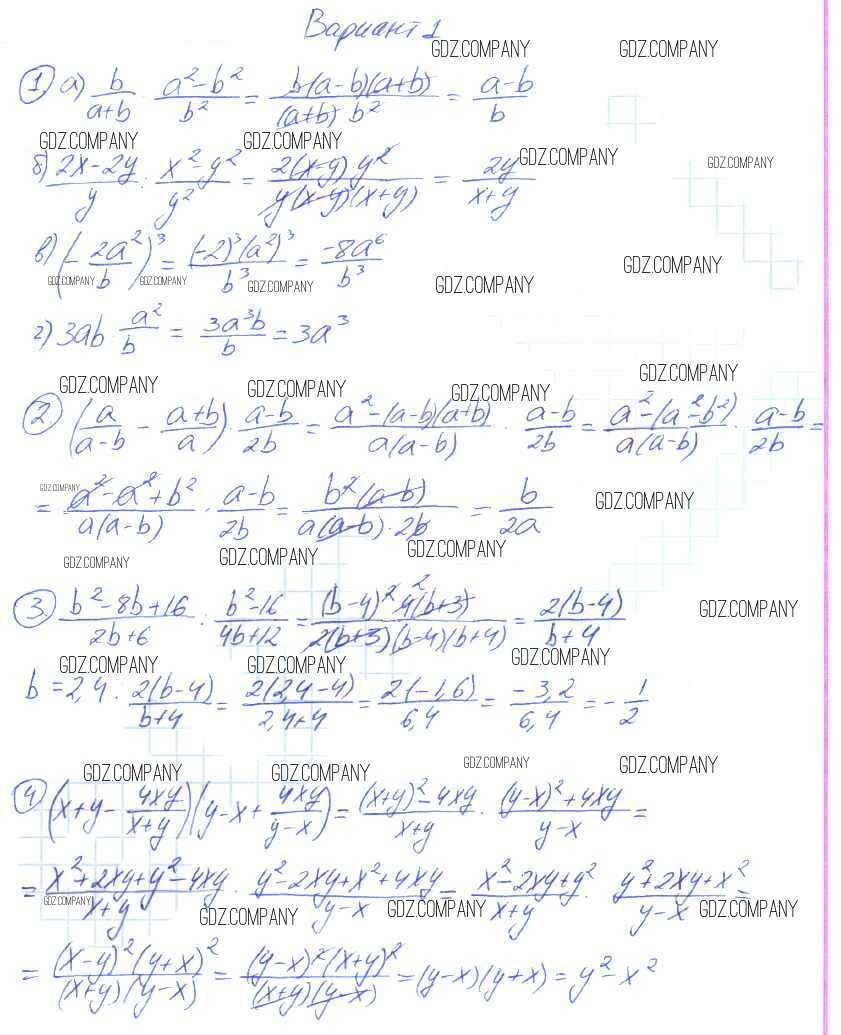 Вариант 1
GDZ.COMPANY GDZ.COMPANY
① а) b/(a+b) · (a²-b²)/b² = b(a-b)(a+b)/((a+b) b²) = (a-b)/b
GDZ.COMPANY GDZ.COMPANY GDZ.COMPANY GDZ.COMPANY
б) (2x-2y)/y : (x²-y²)/y² = 2(x-y) y²/(y(x-y)(x+y)) = 2y/(x+y)
в) (-2a²/b)³ = (-2)³(a²)³/b³ = -8a⁶/b³
GDZ.COMPANY GDZ.COMPANY GDZ.COMPANY GDZ.COMPANY GDZ.COMPANY
г) 3ab · a²/b = 3a³b/b = 3a³
GDZ.COMPANY GDZ.COMPANY GDZ.COMPANY GDZ.COMPANY
② (a/(a-b) - (a+b)/a) · (a-b)/2b = (a²-(a-b)(a+b))/(a(a-b)) · (a-b)/2b = (a²-(a²-b²))/(a(a-b)) · (a-b)/2b =
GDZ.COMPANY GDZ.COMPANY
= (a²-a²+b²)/(a(a-b)) · (a-b)/2b = b²(a-b)/(a(a-b)·2b) = b/2a
GDZ.COMPANY GDZ.COMPANY GDZ.COMPANY
③ (b²-8b+16)/(2b+6) : (b²-16)/(4b+12) = (b-4)² 4(b+3)/(2(b+3)(b-4)(b+4)) 2 = 2(b-4)/(b+4)
GDZ.COMPANY GDZ.COMPANY GDZ.COMPANY GDZ.COMPANY
b = 2,4 · 2(b-4)/(b+4) = 2(2,4-4)/(2,4+4) = 2(-1,6)/6,4 = -3,2/6,4 = -1/2
GDZ.COMPANY GDZ.COMPANY GDZ.COMPANY GDZ.COMPANY
④ (x+y - 4xy/(x+y))(y-x+ 4xy/(y-x)) = ((x+y)²-4xy)/(x+y) · ((y-x)²+4xy)/(y-x) =
= (x²+2xy+y²-4xy)/(x+y) · (y²-2xy+x²+4xy)/(y-x) = (x²-2xy+y²)/(x+y) · (y²+2xy+x²)/(y-x) =
GDZ.COMPANY GDZ.COMPANY GDZ.COMPANY GDZ.COMPANY
= (x-y)²(y+x)²/((x+y)(y-x)) = (y-x)²(x+y)²/((x+y)(y-x)) = (y-x)(y+x) = y²-x²